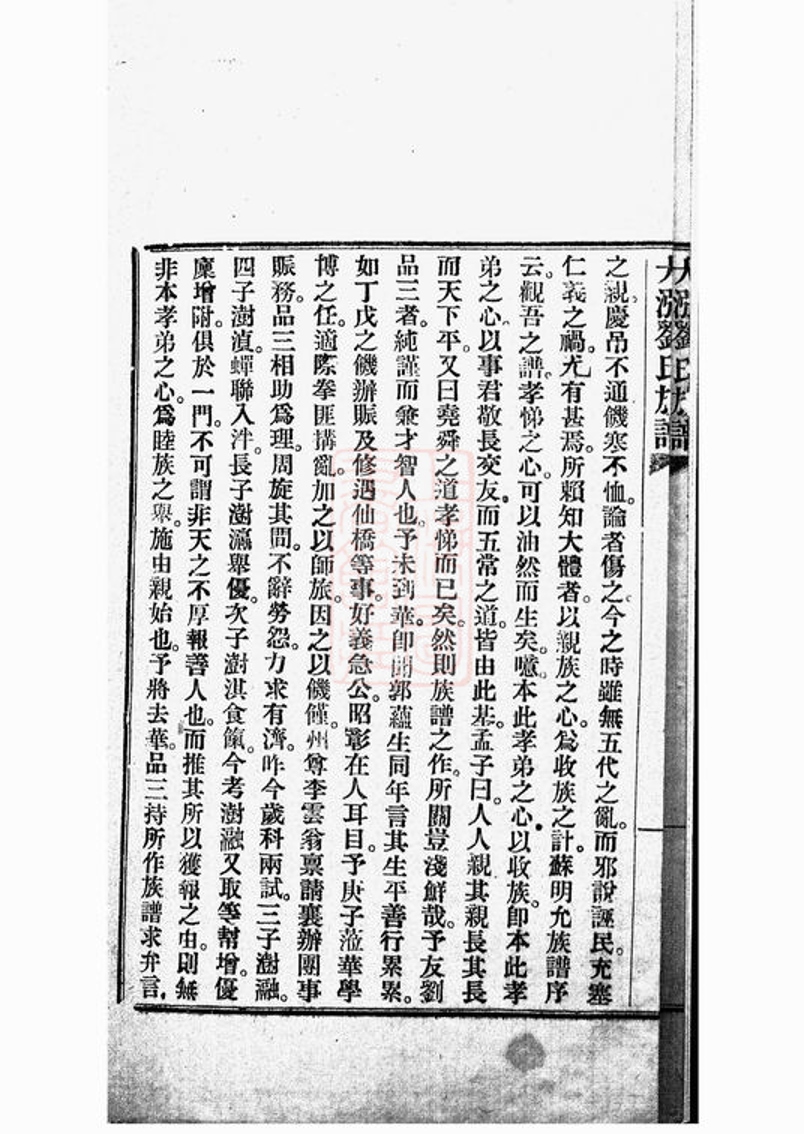 劉氏族譜
之親慶吊不通饑寒不恤。論者傷之。今之時雖無五代之亂。而邪說誣民。充塞
仁義之禍。尤有甚焉。所賴知大體者。以親族之心。爲收族之計。蘇明允族譜序
云。觀吾之譜。孝悌之心。可以油然而生矣。噫。本此孝弟之心。以收族。卽本此孝
弟之心以事君敬長交友。而五常之道。皆由此基。孟子曰。人人親其親長其長
而天下平。又曰堯舜之道孝悌而已矣。然則族譜之作。所關豈淺鮮哉。予友劉
品三者。純謹而兼才智人也。予未到華。卽聞郭蘊生同年言其生平善行累累。
如丁戊之饑辦賑及修遇仙橋等事。好義急公。昭彰在人耳目。予庚子蒞華學
博之任。適際拳匪搆亂。加之以師旅。因之以饑饉。州尊李雲翁稟請襄辦團事
賑務。品三相助爲理。周旋其間。不辭勞怨。力求有濟。昨今歲科兩試。三子澍融。
四子澍滇。蟬聯入泮。長子澍瀛舉優。次子澍淇食餼。今考澍融又取等幫增。優
廩增附。俱於一門。不可謂非天之不厚報善人也。而推其所以獲報之由。則無
非本孝弟之心。爲睦族之舉。施由親始也。予將去華。品三持所作族譜求弁言。